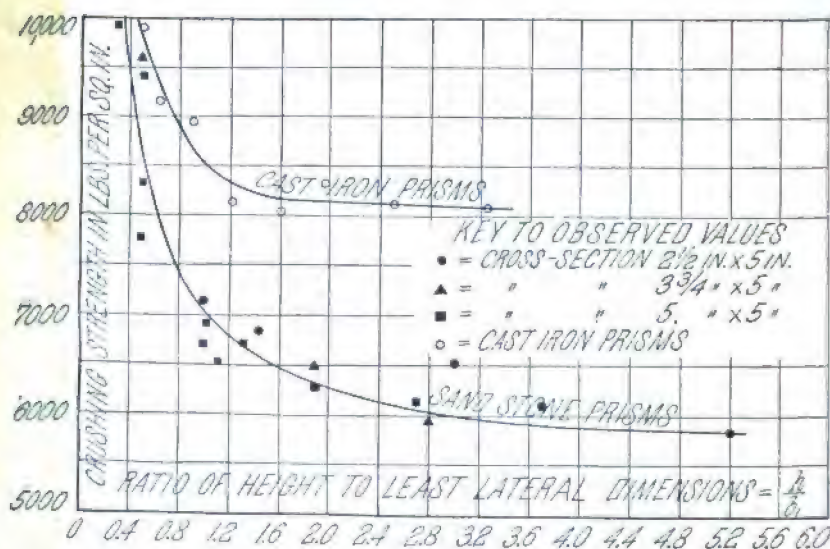 10,000
9000
8000
7000
6000
5000
CRUSHING STRENGTH IN LBS. PER SQ. IN.
CAST IRON PRISMS
KEY TO OBSERVED VALUES
● = CROSS-SECTION 2 1/2 IN. x 5 IN.
▲ = " " 3 3/4 " x 5 "
■ = " " 5. " x 5 "
○ = CAST IRON PRISMS
SAND STONE PRISMS
RATIO OF HEIGHT TO LEAST LATERAL DIMENSIONS = h/b₁
0 0.4 0.8 1.2 1.6 2.0 2.4 2.8 3.2 3.6 4.0 4.4 4.8 5.2 5.6 6.0